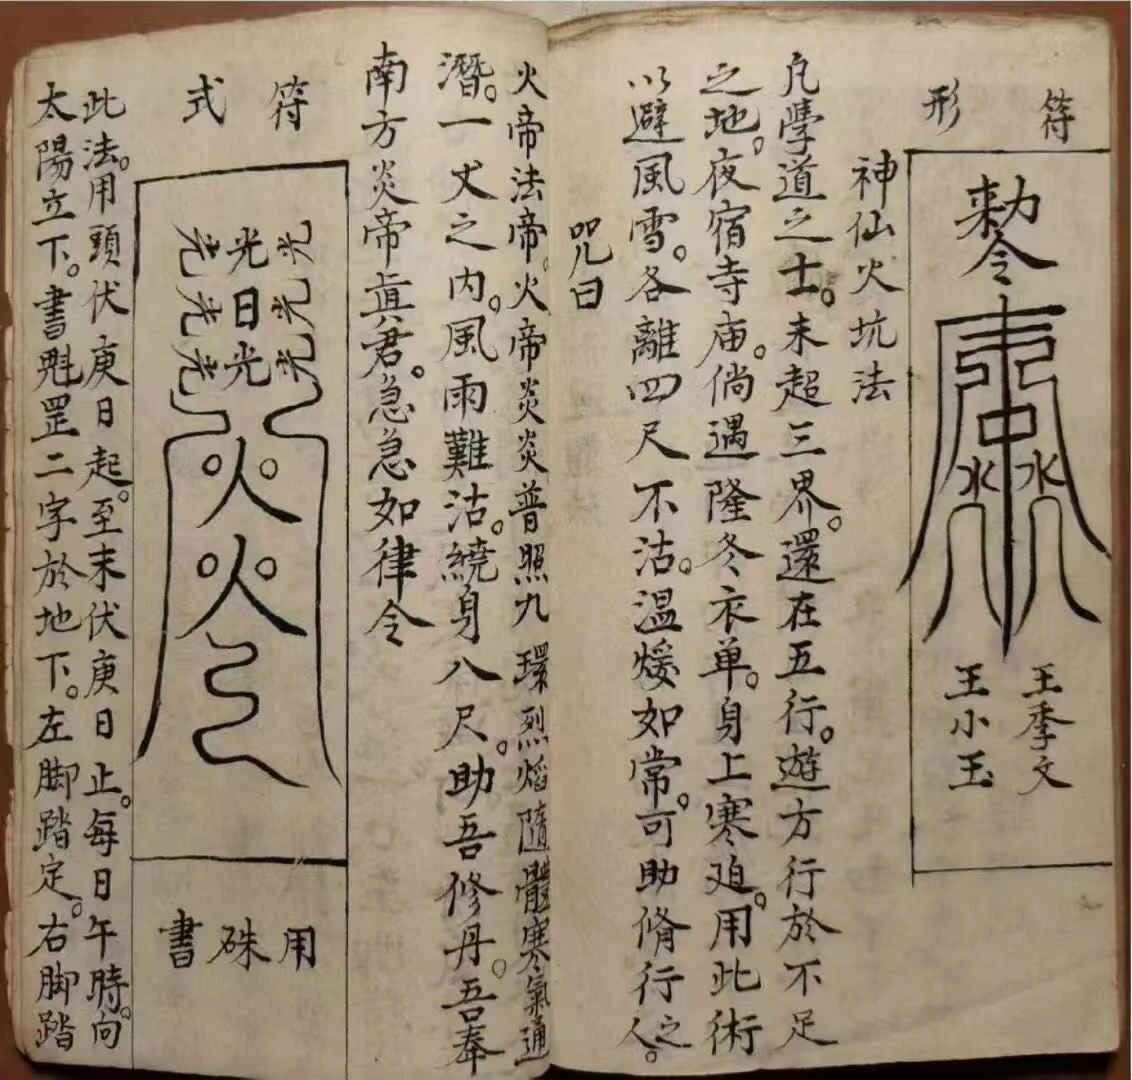 符形
勅令
水水
王季文
王小玉
神仙火坑法
凡學道之士。未超三界。還在五行。遊方行於不足
之地。夜宿寺庙。倘遇隆冬衣单。身上寒廹。用此術
以避風雪。各離四尺不沽。温煖如常。可助脩行之人。
咒曰
火帝法帝。火帝炎炎普照九環烈焰隨體寒氣通
潛。一丈之内。風雨難沽。繞身八尺。助吾修丹。吾奉
南方炎帝眞君。急急如律令
符式
光光光
光日光
光光光
火
火
用硃書
此法。用頭伏庚日起。至末伏庚日止。每日午時。向
太陽立下。書魁罡二字於地下。左脚踏定。右脚踏